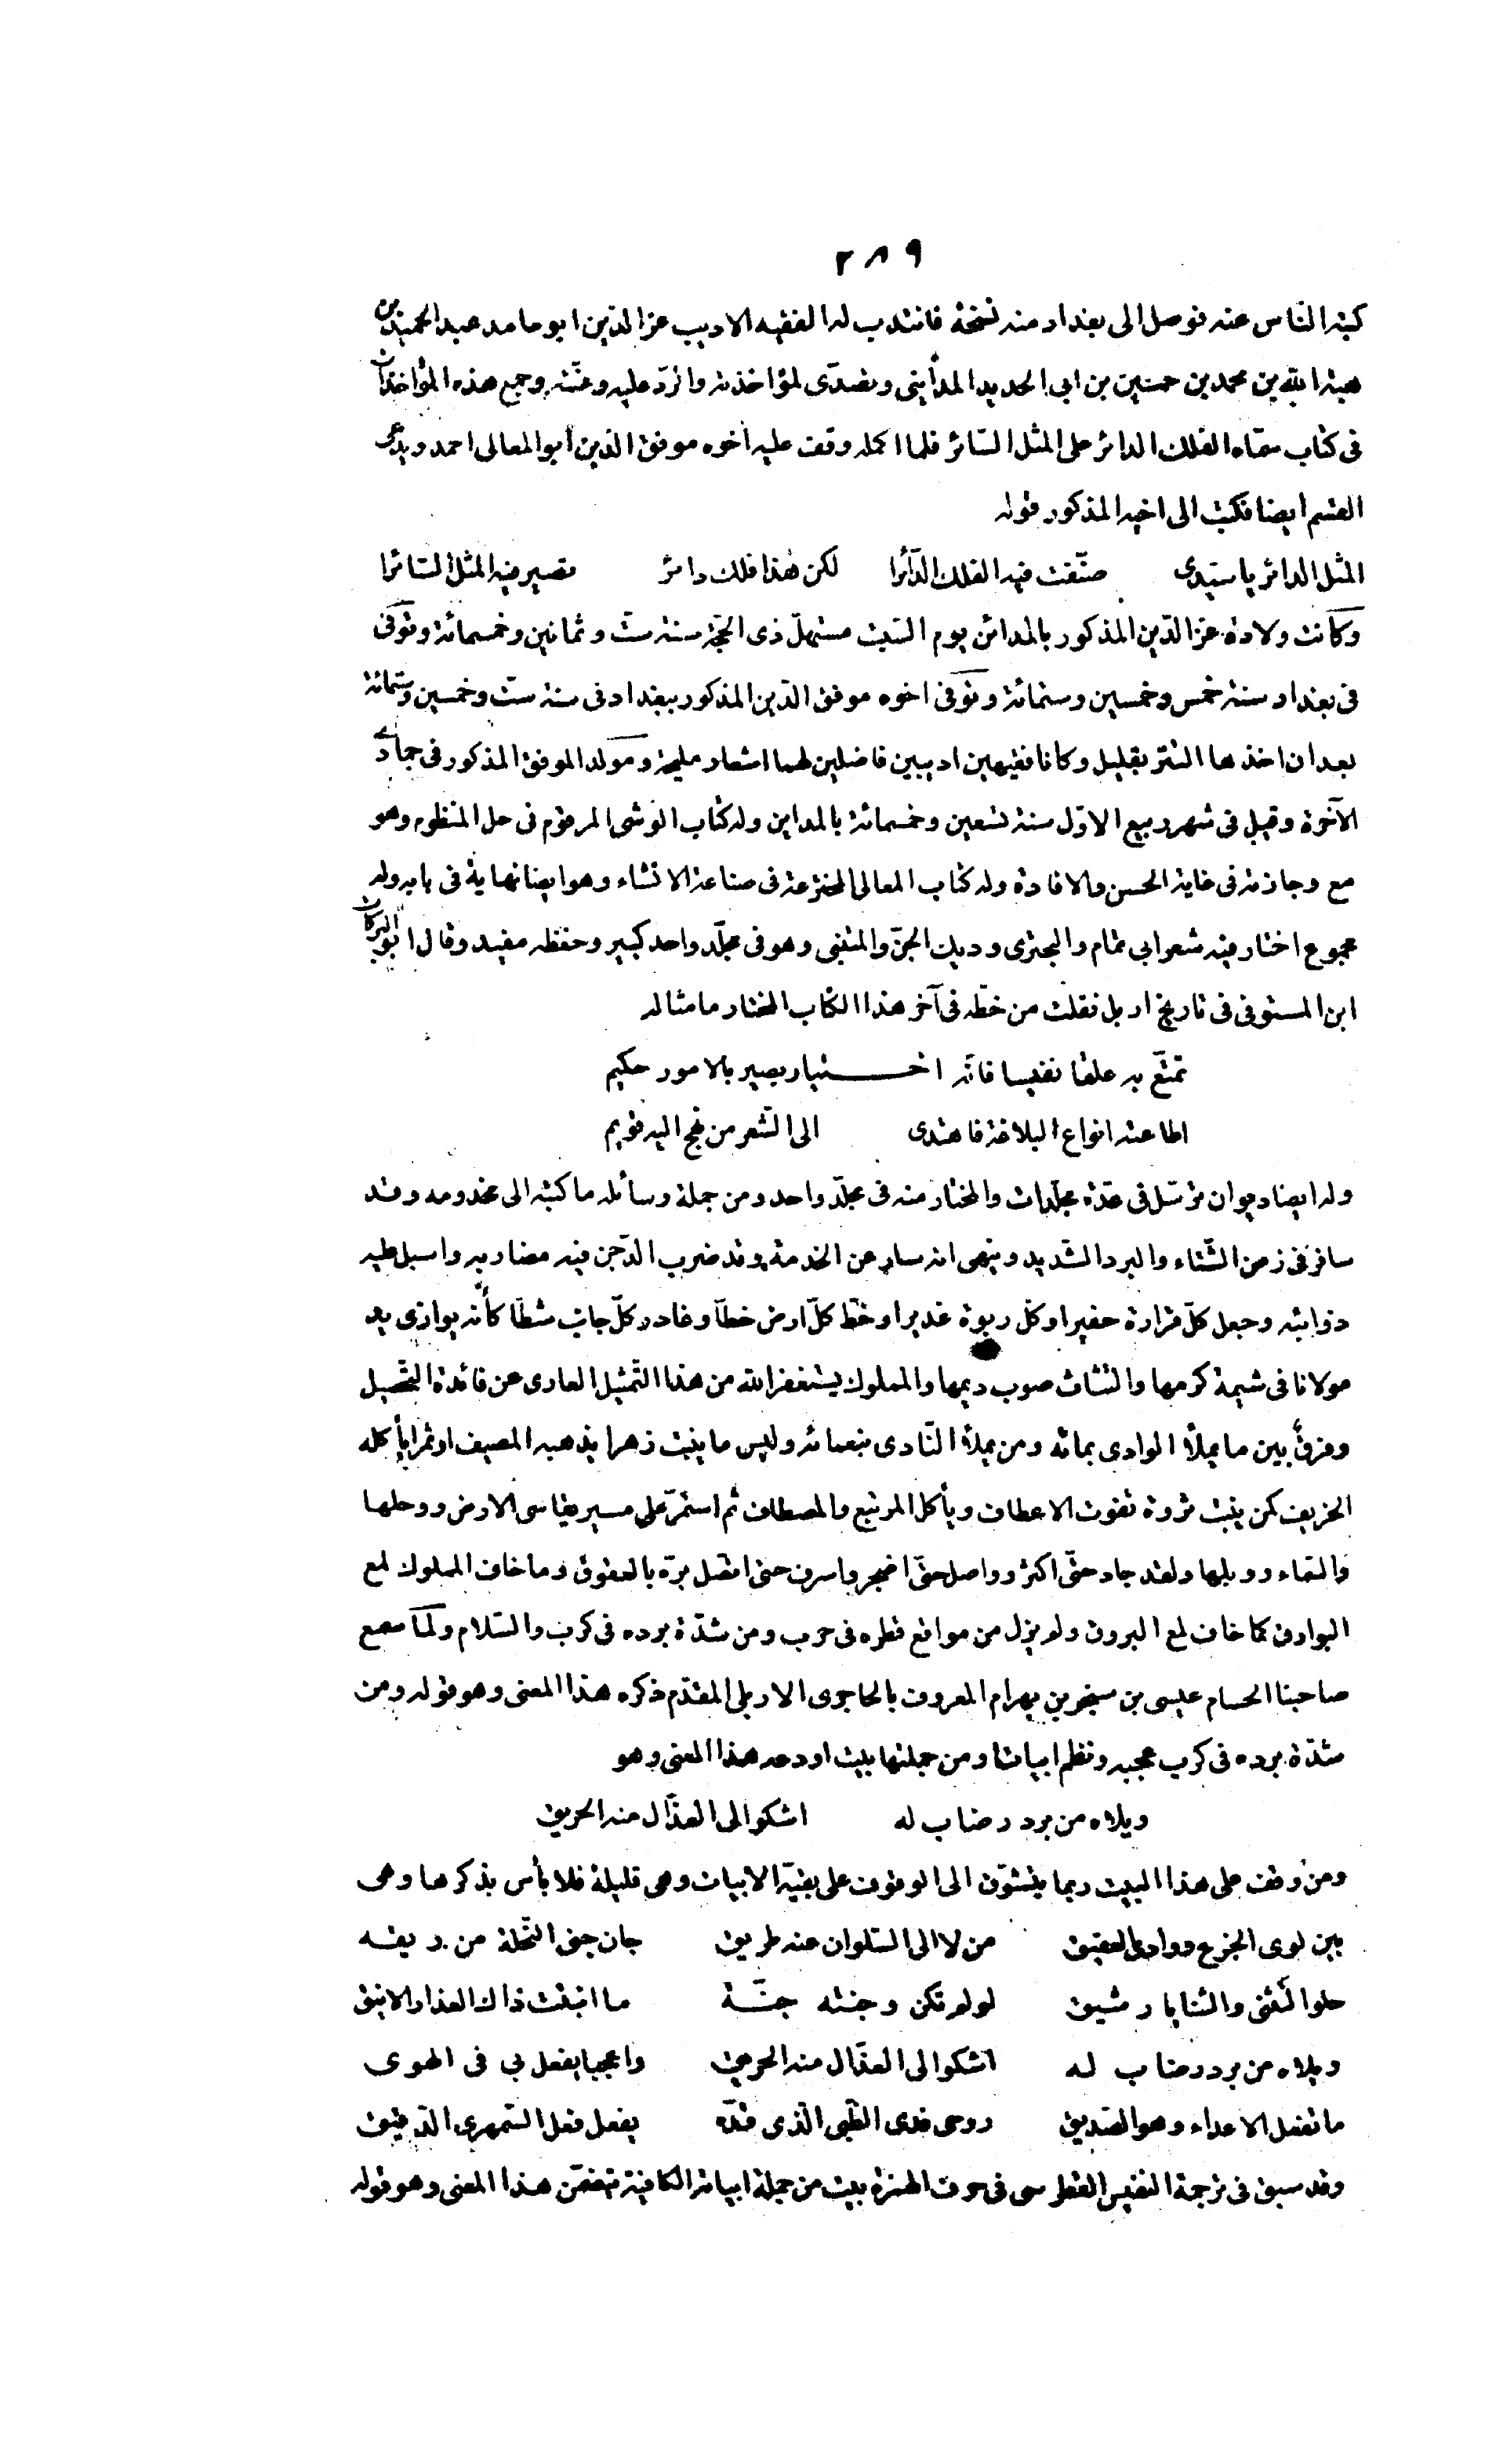 ٢٨٩
كتبه الناس عنه فوصل الى بغداد منه نسخة فانتدب له الفقيه الاديب عز الدين ابو حامد عبد الحميد بن
هبة الله بن محمد بن حسين بن ابى الحديد المدأينى وتصدّى لمؤاخذته والردّ عليه وعنّته وجمع هذه المؤاخذات
فى كتاب سمّاه الفلك الدائر على المثل السّائر فلما اكمله وقف عليه اخوه موفق الدين ابو المعالى احمد ويدعى
القسم ايضا فكتب الى اخيه المذكور قوله
المثل الدائر يا سيّدى صنّفت فيه الفلك الدّآئرا لكن هذا فلك دائر تصير فيه المثل السّائرا
وكانت ولادة عز الدّين المذكور بالمدائن يوم السّبت مستهلّ ذى الحجّة سنة ستّ وثمانين وخمسمائة وتوفّى
فى بغداد سنة خمس وخمسين وستمائة وتوفى اخوه موفق الدّين المذكور ببغداد فى سنة ستّ وخمسين وستمائة
بعد ان اخذها التتر بقليل وكانا فقيهين اديبين فاضلين لهما اشعار مليحة ومولد الموفق المذكور فى جمادى
الآخرة وقيل فى شهر ربيع الاوّل سنة تسعين وخمسمائة بالمداين وله كتاب الوشى المرقوم فى حل المنظوم وهو
مع وجازته فى غاية الحسن والافادة وله كتاب المعالى المخترعة فى صناعة الانشاء وهو ايضا نهاية فى بابه وله
مجموع اختار فيه شعر ابى تمام والبحترى وديك الجنّ والمتنبى وهو فى مجلّد واحد كبير وحفظه مفيد وقال ابو البركات
ابن المستوفى فى تاريخ اربل نقلت من خطّه فى آخر هذا الكتاب المختار ما مثاله
تمتّع به علقا نفيسا فانّه اختيار بصير بالامور حكيم
اطاعته انواع البلاغة فاهتدى الى الشّعر من نهج اليه قويم
وله ايضا ديوان ترسّل فى عدّة مجلّدات والمختار منه فى مجلّد واحد ومن جملة رسائله ما كتبه الى مخدومه وقد
سافر فى زمن الشّتاء والبرد الشّديد وينهى انه سار عن الخدمة وقد ضرب الدّجن فيه مضاربه واسبل عليه
ذوائبه وجعل كلّ قرارة حفيرا وكلّ ربوة غديرا وخطّ كلّ ارض خطّا وغادر كلّ جانب شطّا كأنّه يوازى يد
مولانا فى شيمة كرمها والتثاث صوب ديمها والمملوك يستغفر الله من هذا التّمثيل العارى عن فائدة التحصيل
وفرق بين ما يملأ الوادى بمائه ومن يملأ النّادى بنعمائه وليس ما ينبت زهرا يذهبه المصيف او ثمرا يأكله
الخريف كمن ينبت ثروة تفوت الاعطاف ويأكل المرتبع والمصطاف ثم استمرّ على مسير يقاسى الارض ووحلها
والسّماء ووبلها ولقد جاد حتّى اكثر وواصل حتّى اضجر واسرف حتى اتّصل برّه بالعقوق وما خاف المملوك لمع
البوارق كما خاف لمع البروق ولم يزل من مواقع قطره فى حرب ومن شدّة برده فى كرب والسّلام ولمّا سمع
صاحبنا الحسام عيسى بن سنجر بن بهرام المعروف بالحاجرى الاربلى المقدّم ذكره هذا المعنى وهو قوله ومن
شدّة برده فى كرب عجبه ونظم ابياتا ومن جملتها بيت اودعه هذا المعنى وهو
ويلاه من برد رضاب له اشكو الى العذّال منه الحريق
ومن وقف على هذا البيت ربما يتشوّق الى الوقوف على بقيّة الابيات وهى قليلة فلا بأس بذكرها وهى
بين لوى الجزع ووادى العقيق من لا الى السّلوان عنه طريق جان جنى النّحلة من ريقه
حلو التّثنى والثنايا رشيق لو لم تكن وجنته جنّة ما انبتت ذاك العذار الانيق
ويلاه من برد رضاب له اشكو الى العذّال منه الحريق واعجبا يفعل بى فى الهوى
ما تفعل الاعداء وهو الصّديق روحى فدى الظّبى الّذى قدّه يفعل فعل السّمهرى الدّقيق
وقد سبق فى ترجمة النفيس القطرسى فى حرف الهمزة بيت من جملة ابياته الكافية تتضمّن هذا المعنى وهو قوله